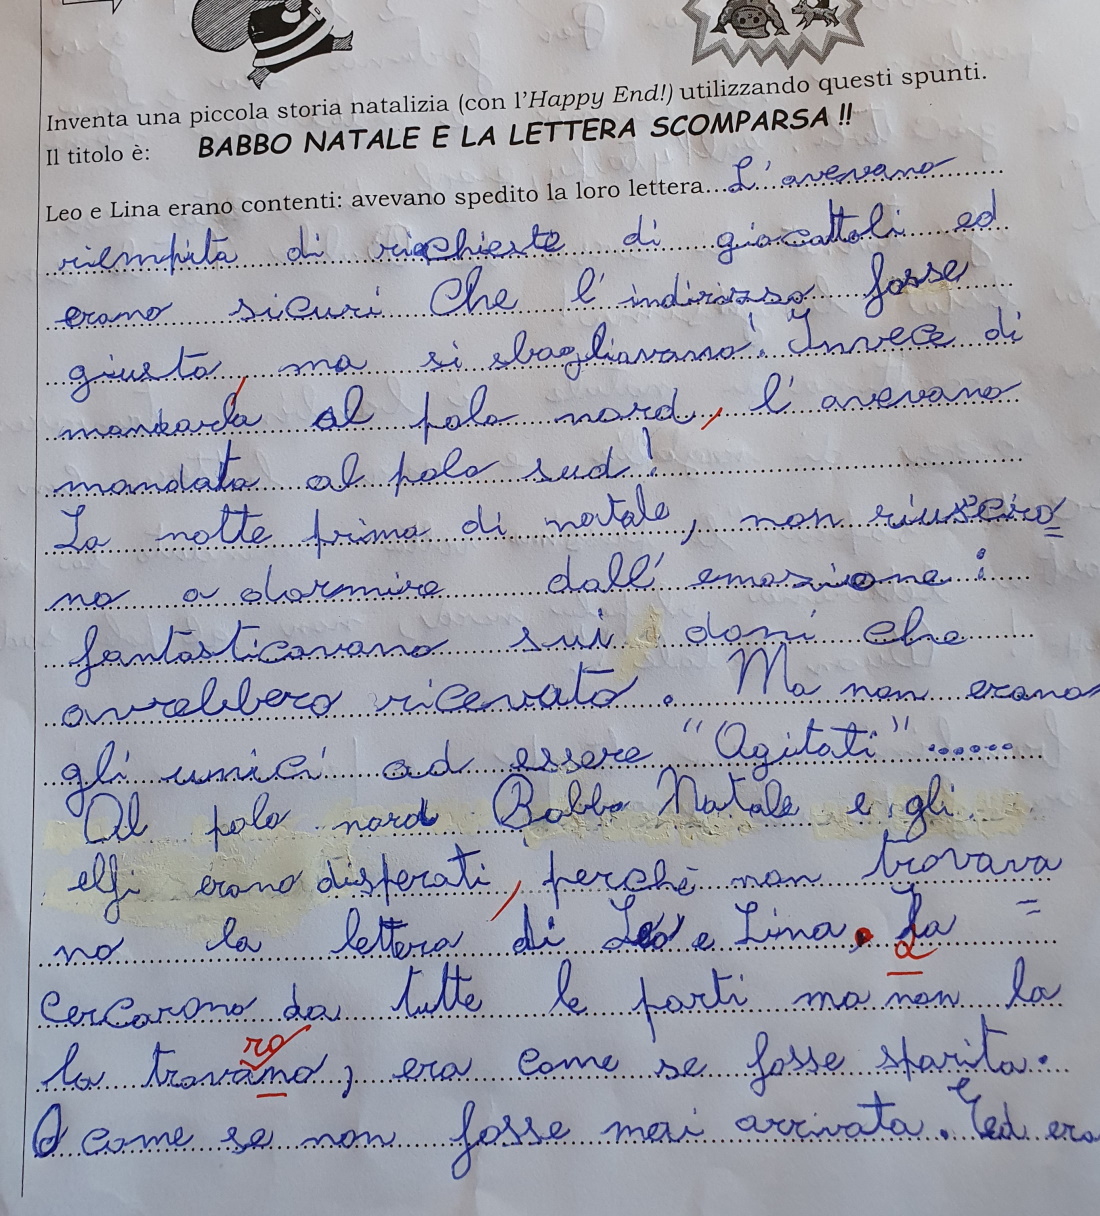 Inventa una piccola storia natalizia (con l'Happy End!) utilizzando questi spunti.
Il titolo è: BABBO NATALE E LA LETTERA SCOMPARSA !!
Leo e Lina erano contenti: avevano spedito la loro lettera... L'avevano
riempita di richieste di giocattoli ed
erano sicuri che l'indirizzo fosse
giusto, ma si sbagliavano! Invece di
mandarla al polo nord, l'avevano
mandata al polo sud!
La notte prima di natale, non riusciro
no a dormire dall'emozione:
fantasticavano sui doni che
avrebbero ricevuto. Ma non erano
gli unici ad essere "Agitati".......
Al polo nord Babbo Natale e gli
elfi erano disperati, perchè non trovava
no la lettera di Leo e Lina. La
cercarono da tutte le parti ma non la
la trovano, era come se fosse sparita.
ro
O come se non fosse mai arrivata. Ed era